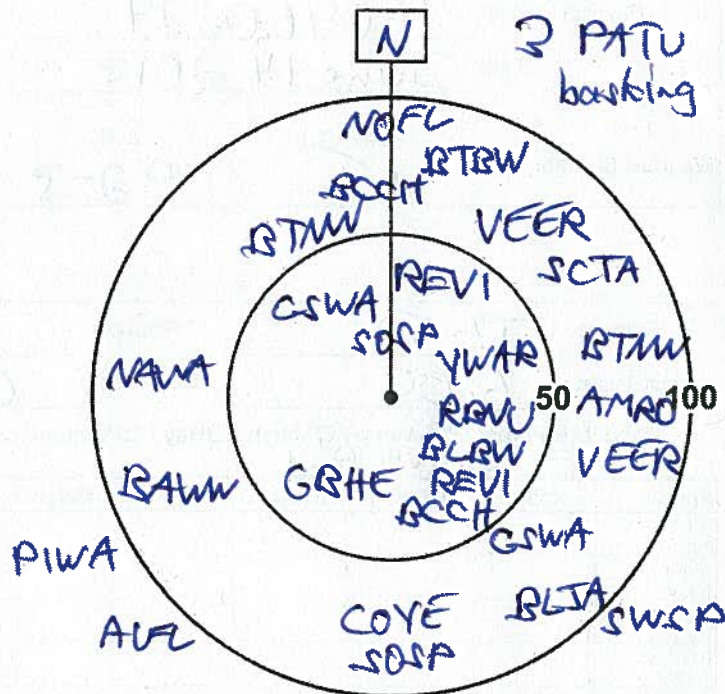 N
3 PATU
basking
NOFL
BTBW
BCCH
BTNW
VEER
SCTA
REVI
CSWA
SOSP
YWAR
BTNW
NAWA
RBNU
50
AMRO
100
BLBW
VEER
BAWW
GBHE
REVI
BCCH
CSWA
PIWA
BLJA
SWSP
ALFL
COYE
SOSP